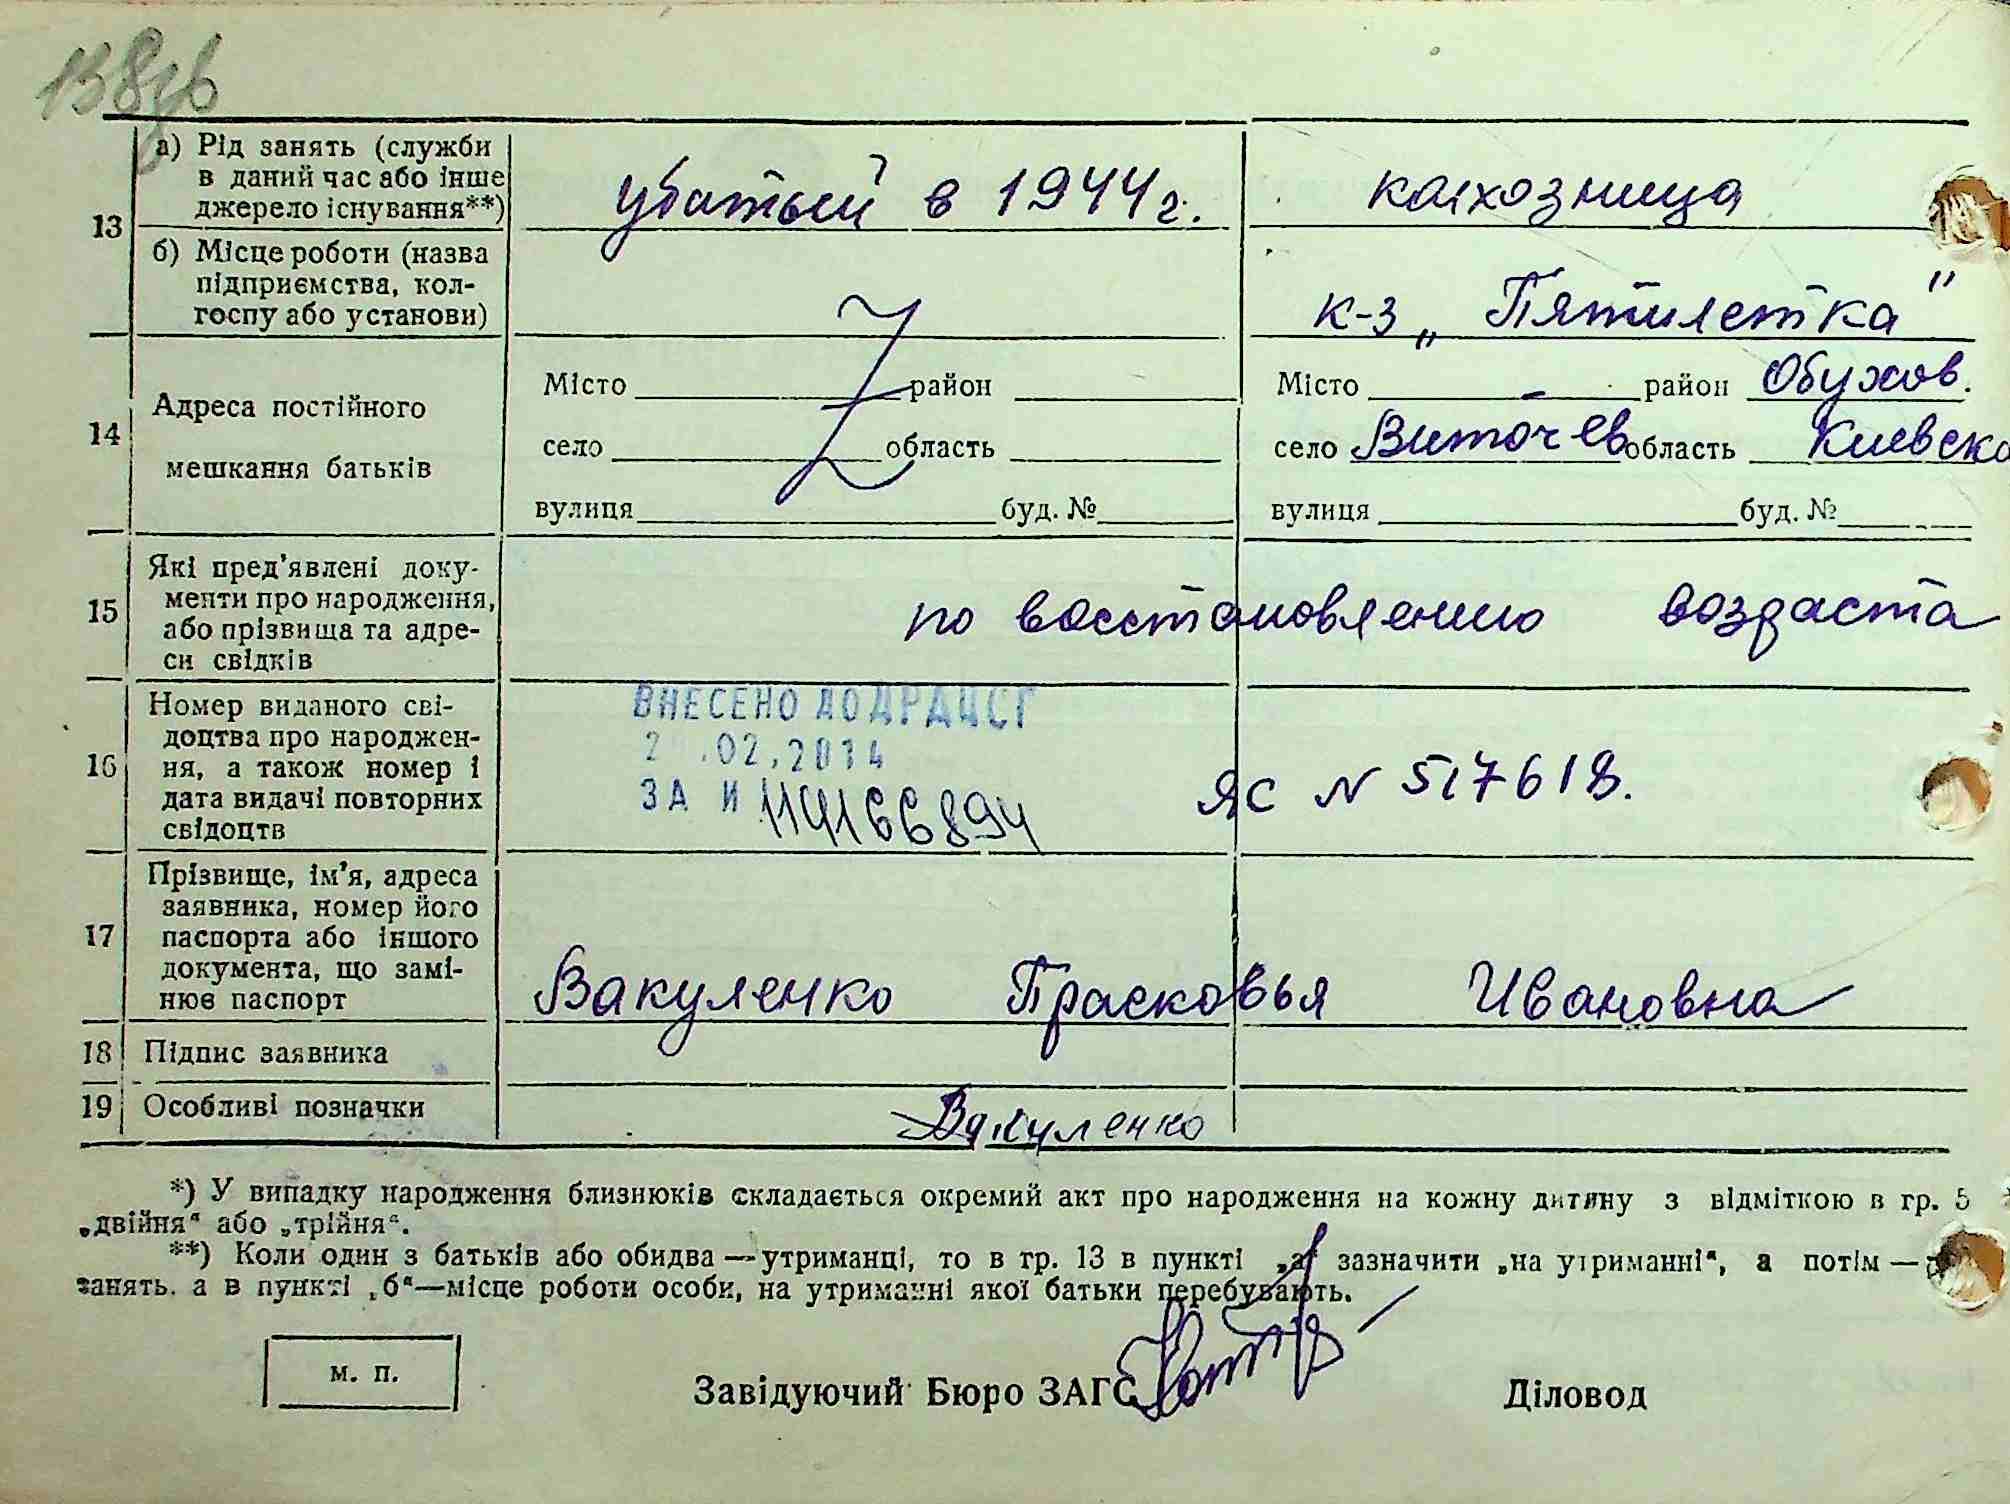 138зв
13
а) Рід занять (служби
в даний час або інше
джерело існування**)
убитый в 1944 г.
колхозница
б) Місце роботи (назва
підприємства, кол-
госпу або установи)
к-з „Пятилетка"
14
Адреса постійного
мешкання батьків
Місто район
село область
вулиця буд. №
Місто - район Обухов.
село Витачев область Киевско
вулиця буд. №
15
Які пред'явлені доку-
менти про народження,
або прізвища та адре-
си свідків
по восстановлению возраста
16
Номер виданого сві-
доцтва про народжен-
ня, а також номер і
дата видачі повторних
свідоцтв
ВНЕСЕНО ДО ДРАЦСГ
2 .02.2014
ЗА И 114166894
ЯС N 517618.
17
Прізвище, ім'я, адреса
заявника, номер його
паспорта або іншого
документа, що замі-
нює паспорт
Вакуленко Прасковья Ивановна
18 Підпис заявника
19 Особливі позначки
Вакуленко
*) У випадку народження близнюків складається окремий акт про народження на кожну дитину з відміткою в гр. 5
„двійня" або „трійня".
**) Коли один з батьків або обидва — утриманці, то в гр. 13 в пункті „а" зазначити „на утриманні", а потім —
занять, а в пункті „б"—місце роботи особи, на утриманні якої батьки перебувають.
м. п.
Завідуючий Бюро ЗАГС
Діловод